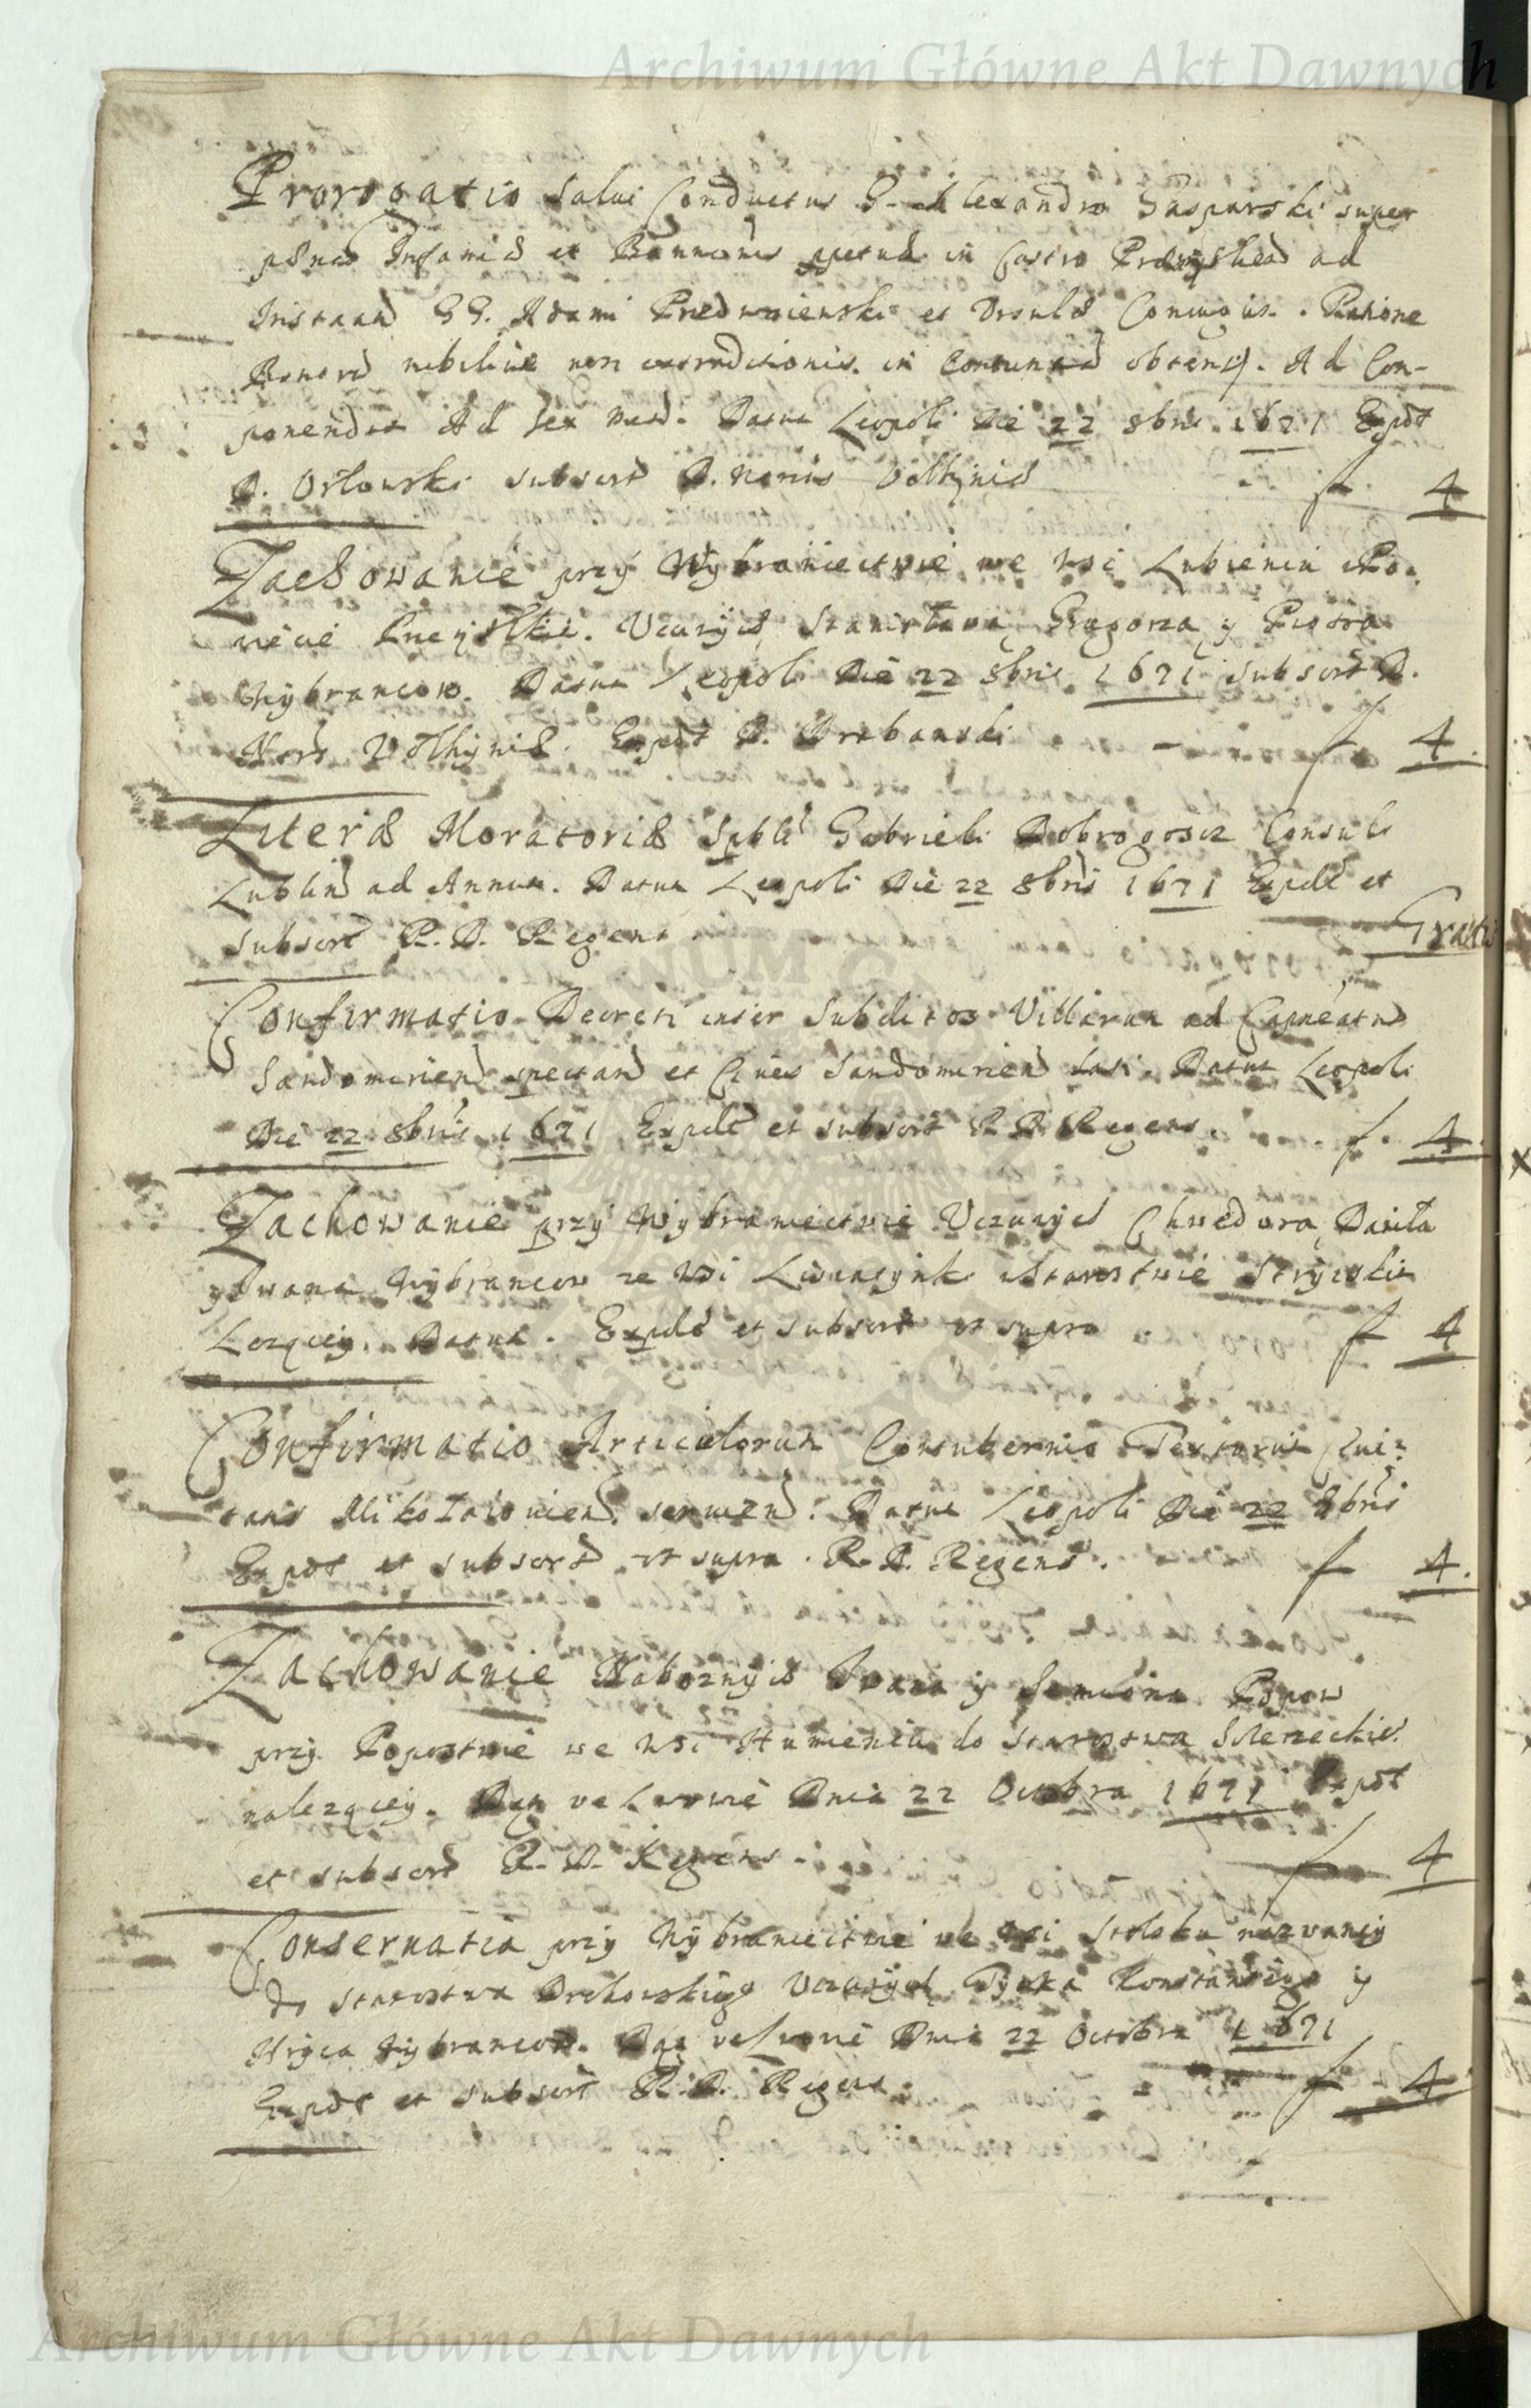 Archiwum Główne Akt Dawnych
Prorogatio Salvi Conductus G. Alexandro Gasparski super
pænas Infamiæ et Bannionis ppetuæ in Castro ad
Instan GG. Adami et Ursulæ Coniugis. Ratione
Bonorũ mobiliũ non extraditionis in Contumaa obtent. Ad Con-
ponendũ Ad sex men. Datum Leopoli Die 22 8bris 1671 Expdt
D. Orłowski subscrt D. Noriis Volhyniæ f 4
Zachowanie przy Wybraniectwie we wsi Lubieniu w Po-
wiecie Uczciwych Stanisława, Grzegorza, y Piotra
Wybrancow. Datum Leopoli Die 22 8bris 1671 Subscrt D.
Nors Volhyniæ. Expdt D. Drabanski f 4.
Literæ Moratoriæ Spbli Gabrieli Dobrogosz Consuli
Lublin ad Annum. Datum Leopoli Die 22 8bris 1671 Expdt et
Subscrt R. D. Regens Gratis
Confirmatio Decreti inter Subditos Villarum ad Capneatũ
Sandomirien spectan et Cives Sandomirien lati. Datum Leopoli
Die 22 8bris 1671 Expdt et subscrt R. D. Regens. f. 4.
Zachowanie przy Wybraniectwie Uczciwych Chwedora, Daniła
y Iwana Wybrancow ze Wsi w Starostwie Stryiskim
Lezącey. Datum. Expdt et subscrt ut supra f 4
Confirmatio Articulorum Contubernio Textorum Civi-
tatis Mikołaiowien servien. Datum Leopoli Die 22 8bris
Expdt et subscrt ut supra. R. D. Regens. f 4.
Zachowanie Naboznych Iwana y Semiona Popow
przy Popostwie we wsi Humieniu do Starostwa
nalezącey. Dan we Lwowie Dnia 22 Octobra 1671 Expdt
et subscrt R. D. Regens. f 4
Conservatia przy Wybraniectwie we wsi nazwaney
do Starostwa Uczciwych Konstantego y
Hryca Wybrancow. Dan we Lwowie Dnia 22 Octobra 1671
Expdt et subscrt R. D. Regens. f 4
Archiwum Główne Akt Dawnych